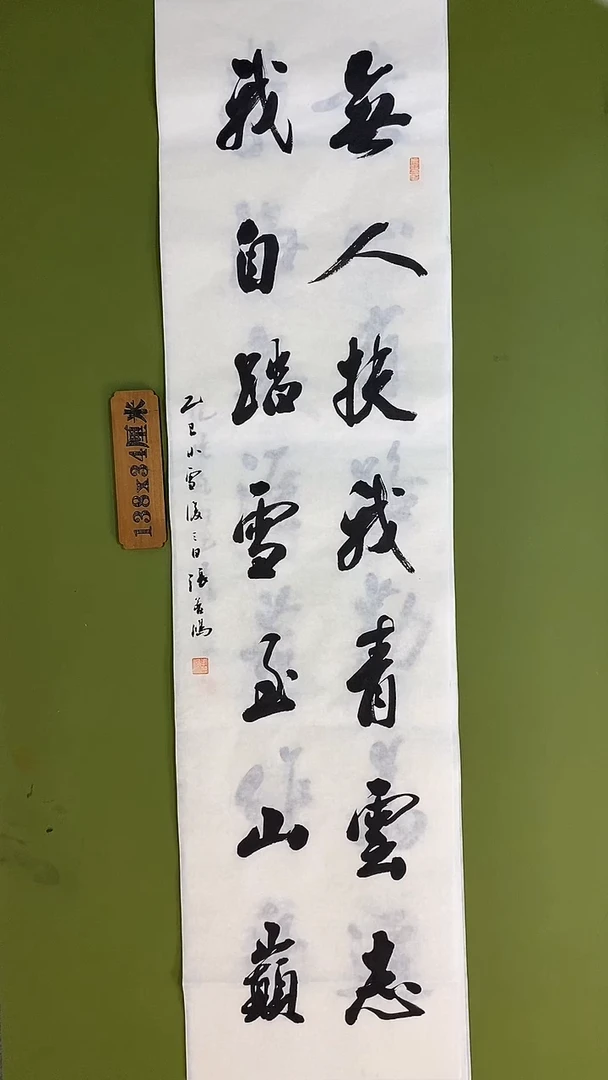 無人扶我青雲志
我自踏雪至山巔
乙巳小雪後三日張善鴻
138x34厘米